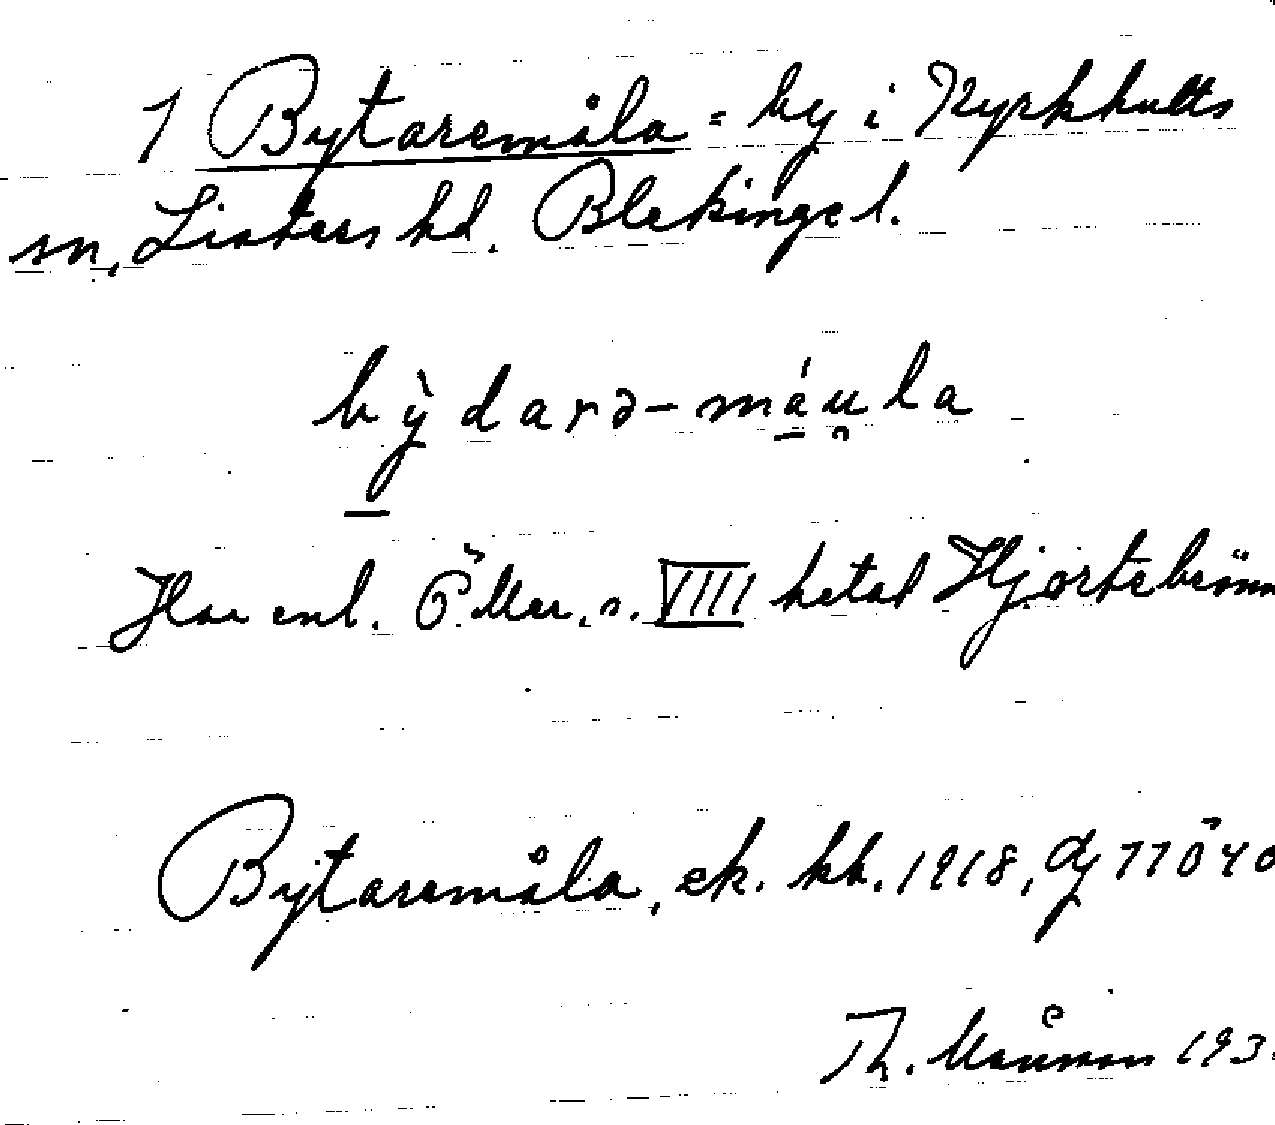 1 Bytaremåla = by i Kyrkhults
sn, Listers hd. Blekinge l.
bỳdarə-máu̯la
Har enl. Öller, s. VIII hetat Hjortebrönn
Bytaremåla, ek. kb. 1918, dj 77ö40
Th. Månson 193